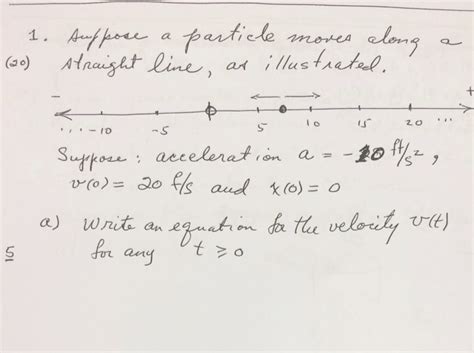 1. Suppose a particle moves along a
(20) straight line, as illustrated.
- +
... -10 -5 5 10 15 20 ...
Suppose: acceleration a = -10 ft/s²,
v(0) = 20 f/s and x(0) = 0
a) Write an equation for the velocity v(t)
5 for any t ⩾ 0